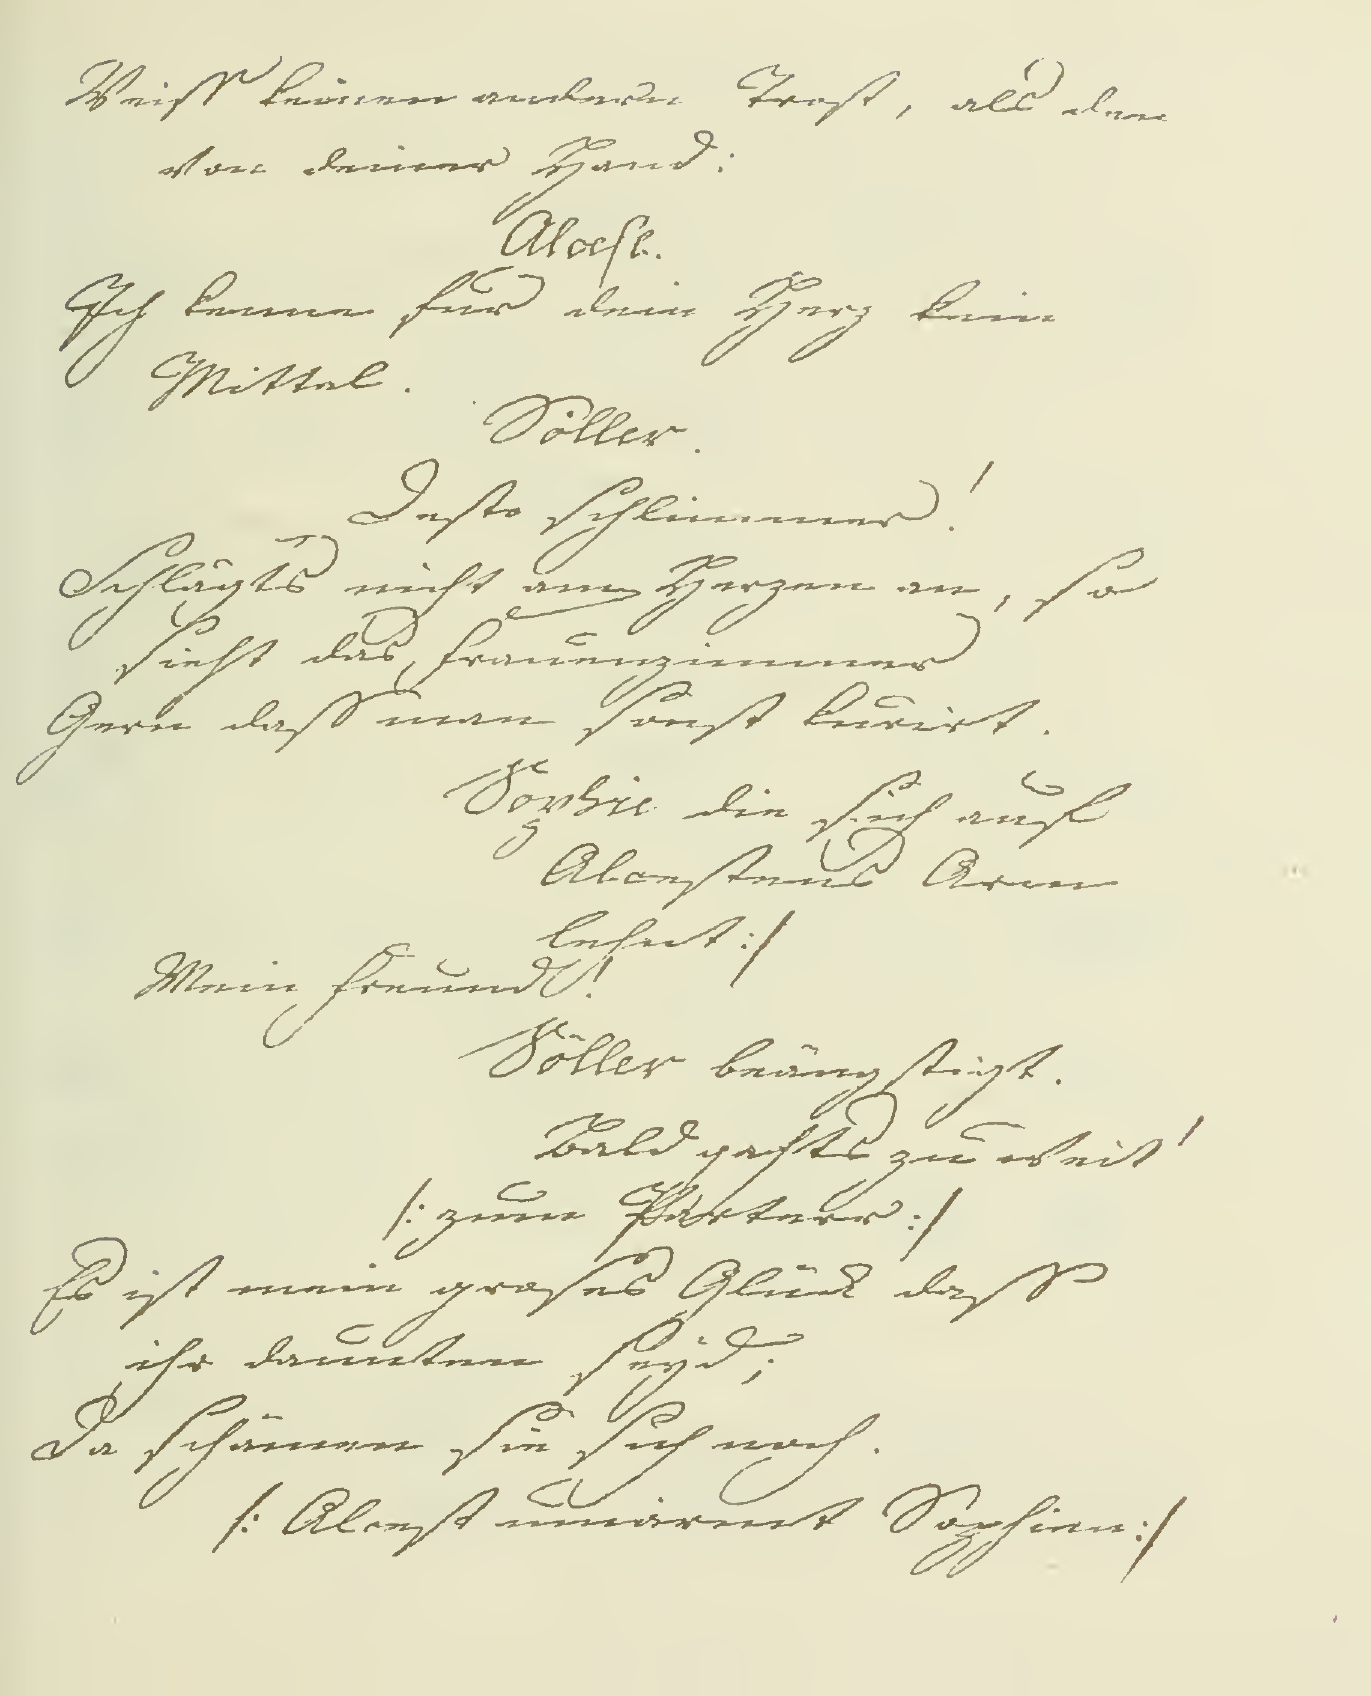 Weiss keinen andern Trost, als den
von deiner Hand:
Alcest.
Ich kenne für dein Herz kein
Mittel.
Söller.
Desto schlimmer!
Schlägts nicht am Herzen an, so
sieht das Frauenzimmer
Gern dass man sonst kurirt.
Sophie die sich auf
Alcestens Arm
lehnt:/
Mein Freund!
Söller beängstigt.
Bald gehts zu weit!
/: zum Parterr :/
Es ist mein groses Glück dass
ihr daunten seyd;
Da schämen sie sich noch.
/: Alcest umarmt Sophien:/